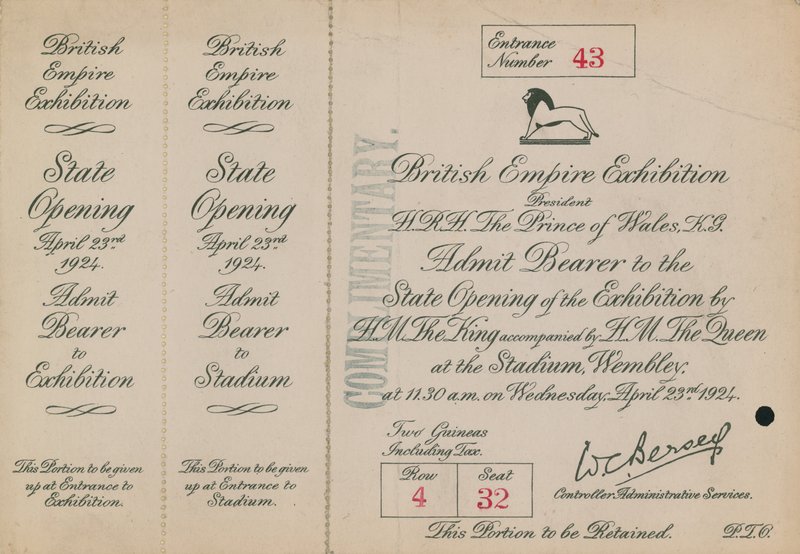 British
Empire
Exhibition
State
Opening
April 23rd
1924.
Admit
Bearer
to
Exhibition
This Portion to be given
up at Entrance to
Exhibition.
British
Empire
Exhibition
State
Opening
April 23rd
1924.
Admit
Bearer
to
Stadium
This Portion to be given
up at Entrance to
Stadium.
COMPLIMENTARY.
Entrance
Number 43
British Empire Exhibition
President
H.R.H. The Prince of Wales, K.G.
Admit Bearer to the
State Opening of the Exhibition by
H.M. The King accompanied by H.M. The Queen
at the Stadium, Wembley,
at 11.30 a.m. on Wednesday, April 23rd 1924.
Two Guineas
Including Tax.
Row Seat
4 32
Controller Administrative Services.
This Portion to be Retained. P.T.O.